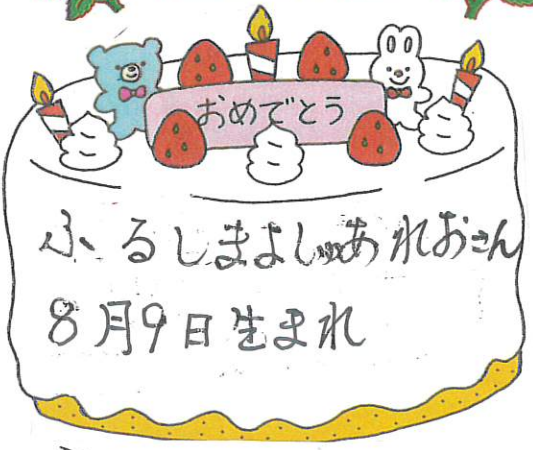 おめでとう
ふるしまよしゅあれおさん
8月9日生まれ